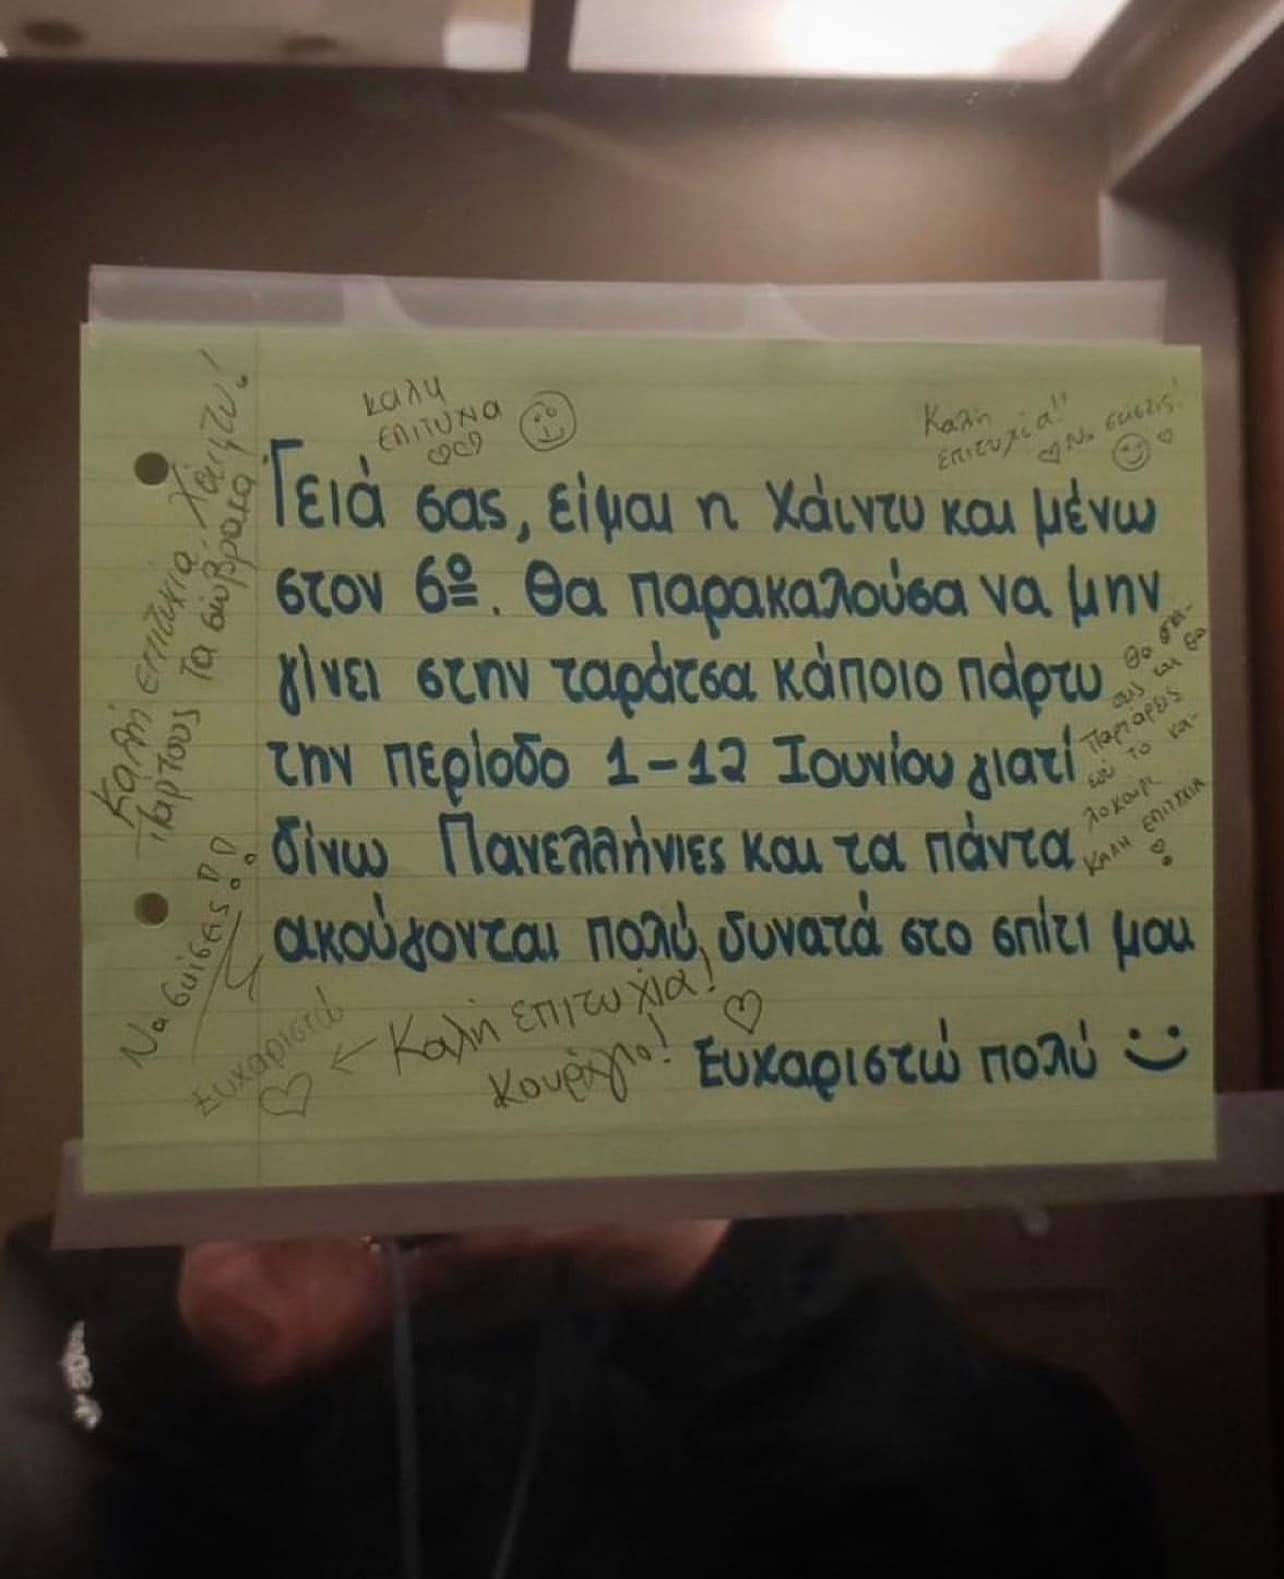 καλη
επιτυχια
Καλή
επιτυχία!!
Να σκίσεις!
Γειά σας, είμαι η Χάιντυ και μένω
στον 6º. Θα παρακαλούσα να μην
γίνει στην ταράτσα κάποιο πάρτυ
την περίοδο 1-12 Ιουνίου γιατί
δίνω Πανελλήνιες και τα πάντα
ακούγονται πολύ δυνατά στο σπίτι μου
Ευχαριστώ πολύ :)
Καλή επιτυχία Χάιντυ!
Παρτους τα σώβρακα
Να σκίσεις!!
Ευχαριστώ
← Καλή επιτυχία!
Κουράγιο!
Θα σκι-
σεις και θα
Παρταρεις
εσύ το κα-
λοκαιρι
ΚΑΛΗ ΕΠΙΤΥΧΙΑ